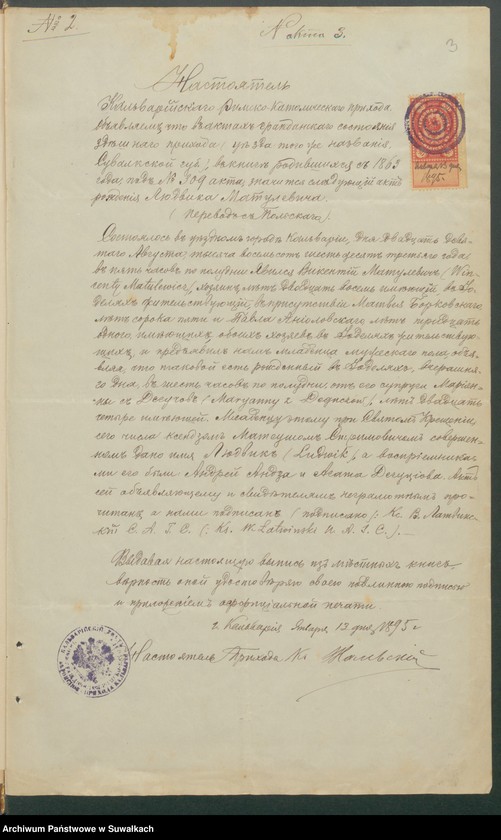 № 2.
N акта 3.
3
Настоятель
Кальварійскаго Римско-Католическаго прихода
объявляетъ что въ актахъ гражданскаго состоянія
здѣшняго прихода (уѣзда того же названія,
Сувалкской губ.) въ книгѣ родившихся съ 1863
года, подъ № 309 акта, значится слѣдующій актъ
рожденія Людвика Матулевича.
(Переводъ съ Польскаго).
Состоялось въ уѣздномъ городѣ Кальваріи, дня двадцать девя-
таго Августа, тысяча восемьсотъ шестьдесятъ третьяго года,
въ пять часовъ по полудни. Явился Викентій Матулевичъ (Win-
centy Matulewicz), лѣтъ двадцать восемь имѣющій въ
жительствующій, въ присутствіи Матвея Бодковскаго
лѣтъ сорока пяти и Павла Анголовскаго лѣтъ тридцать
имѣющихъ обоихъ хозяевъ въ жительствую-
щихъ, и предъявилъ намъ младенца мужескаго пола, объя-
вляя, что таковой есть рожденный въ вчерашня-
го дня, въ шесть часовъ по полудни отъ его супруги Маріан-
ны съ лѣтъ двадцать
четыре имѣющей. Младенцу этому при Святомъ Крещеніи,
сего числа ксендзомъ Матеушомъ совершен-
номъ дано имя Людвикъ (Ludwik), а воспріемника-
ми его были Андрей и Агата Актъ
сей объявляющему и свидѣтелямъ неграмотнымъ про-
читанъ а нами подписанъ (подписано): Кс. В.
С. А. Г. С. (: Ks. W. U. A. S. C.). —
Выдавая настоящую выпись изъ мѣстныхъ книгъ
вѣрность оной удостовѣряю своею подлинною подписью
и приложеніемъ оффиціальной печати
г. Кальварія Января 13 дня 1895 г
Настоятель Прихода Кс.
1895.
Archiwum Państwowe w Suwałkach